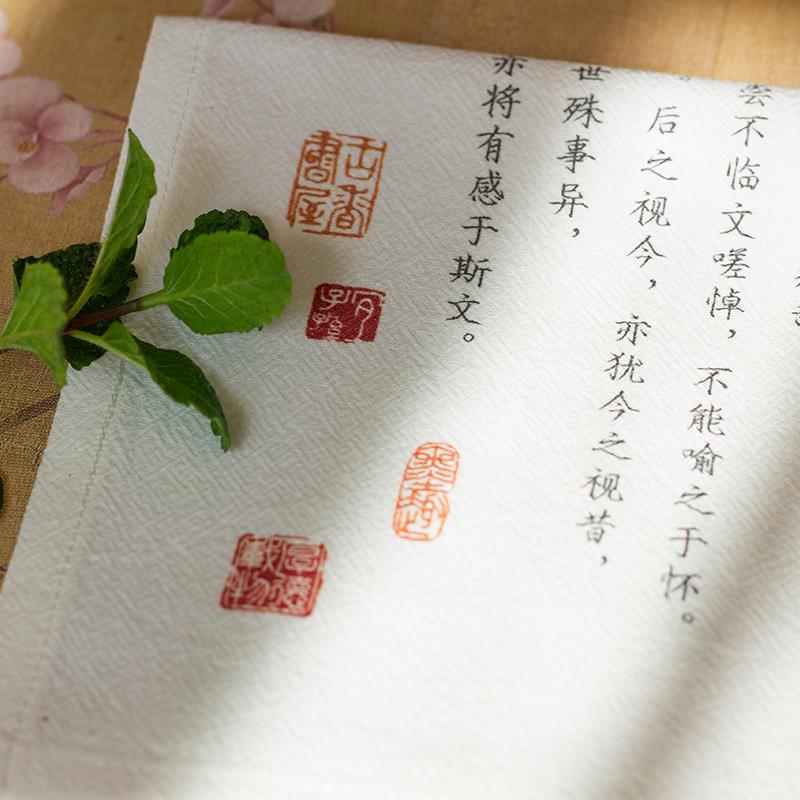 尝不临文嗟悼，不能喻之于怀。
。后之视今，亦犹今之视昔，
世殊事异，
亦将有感于斯文。
古香書屋
厚德載物